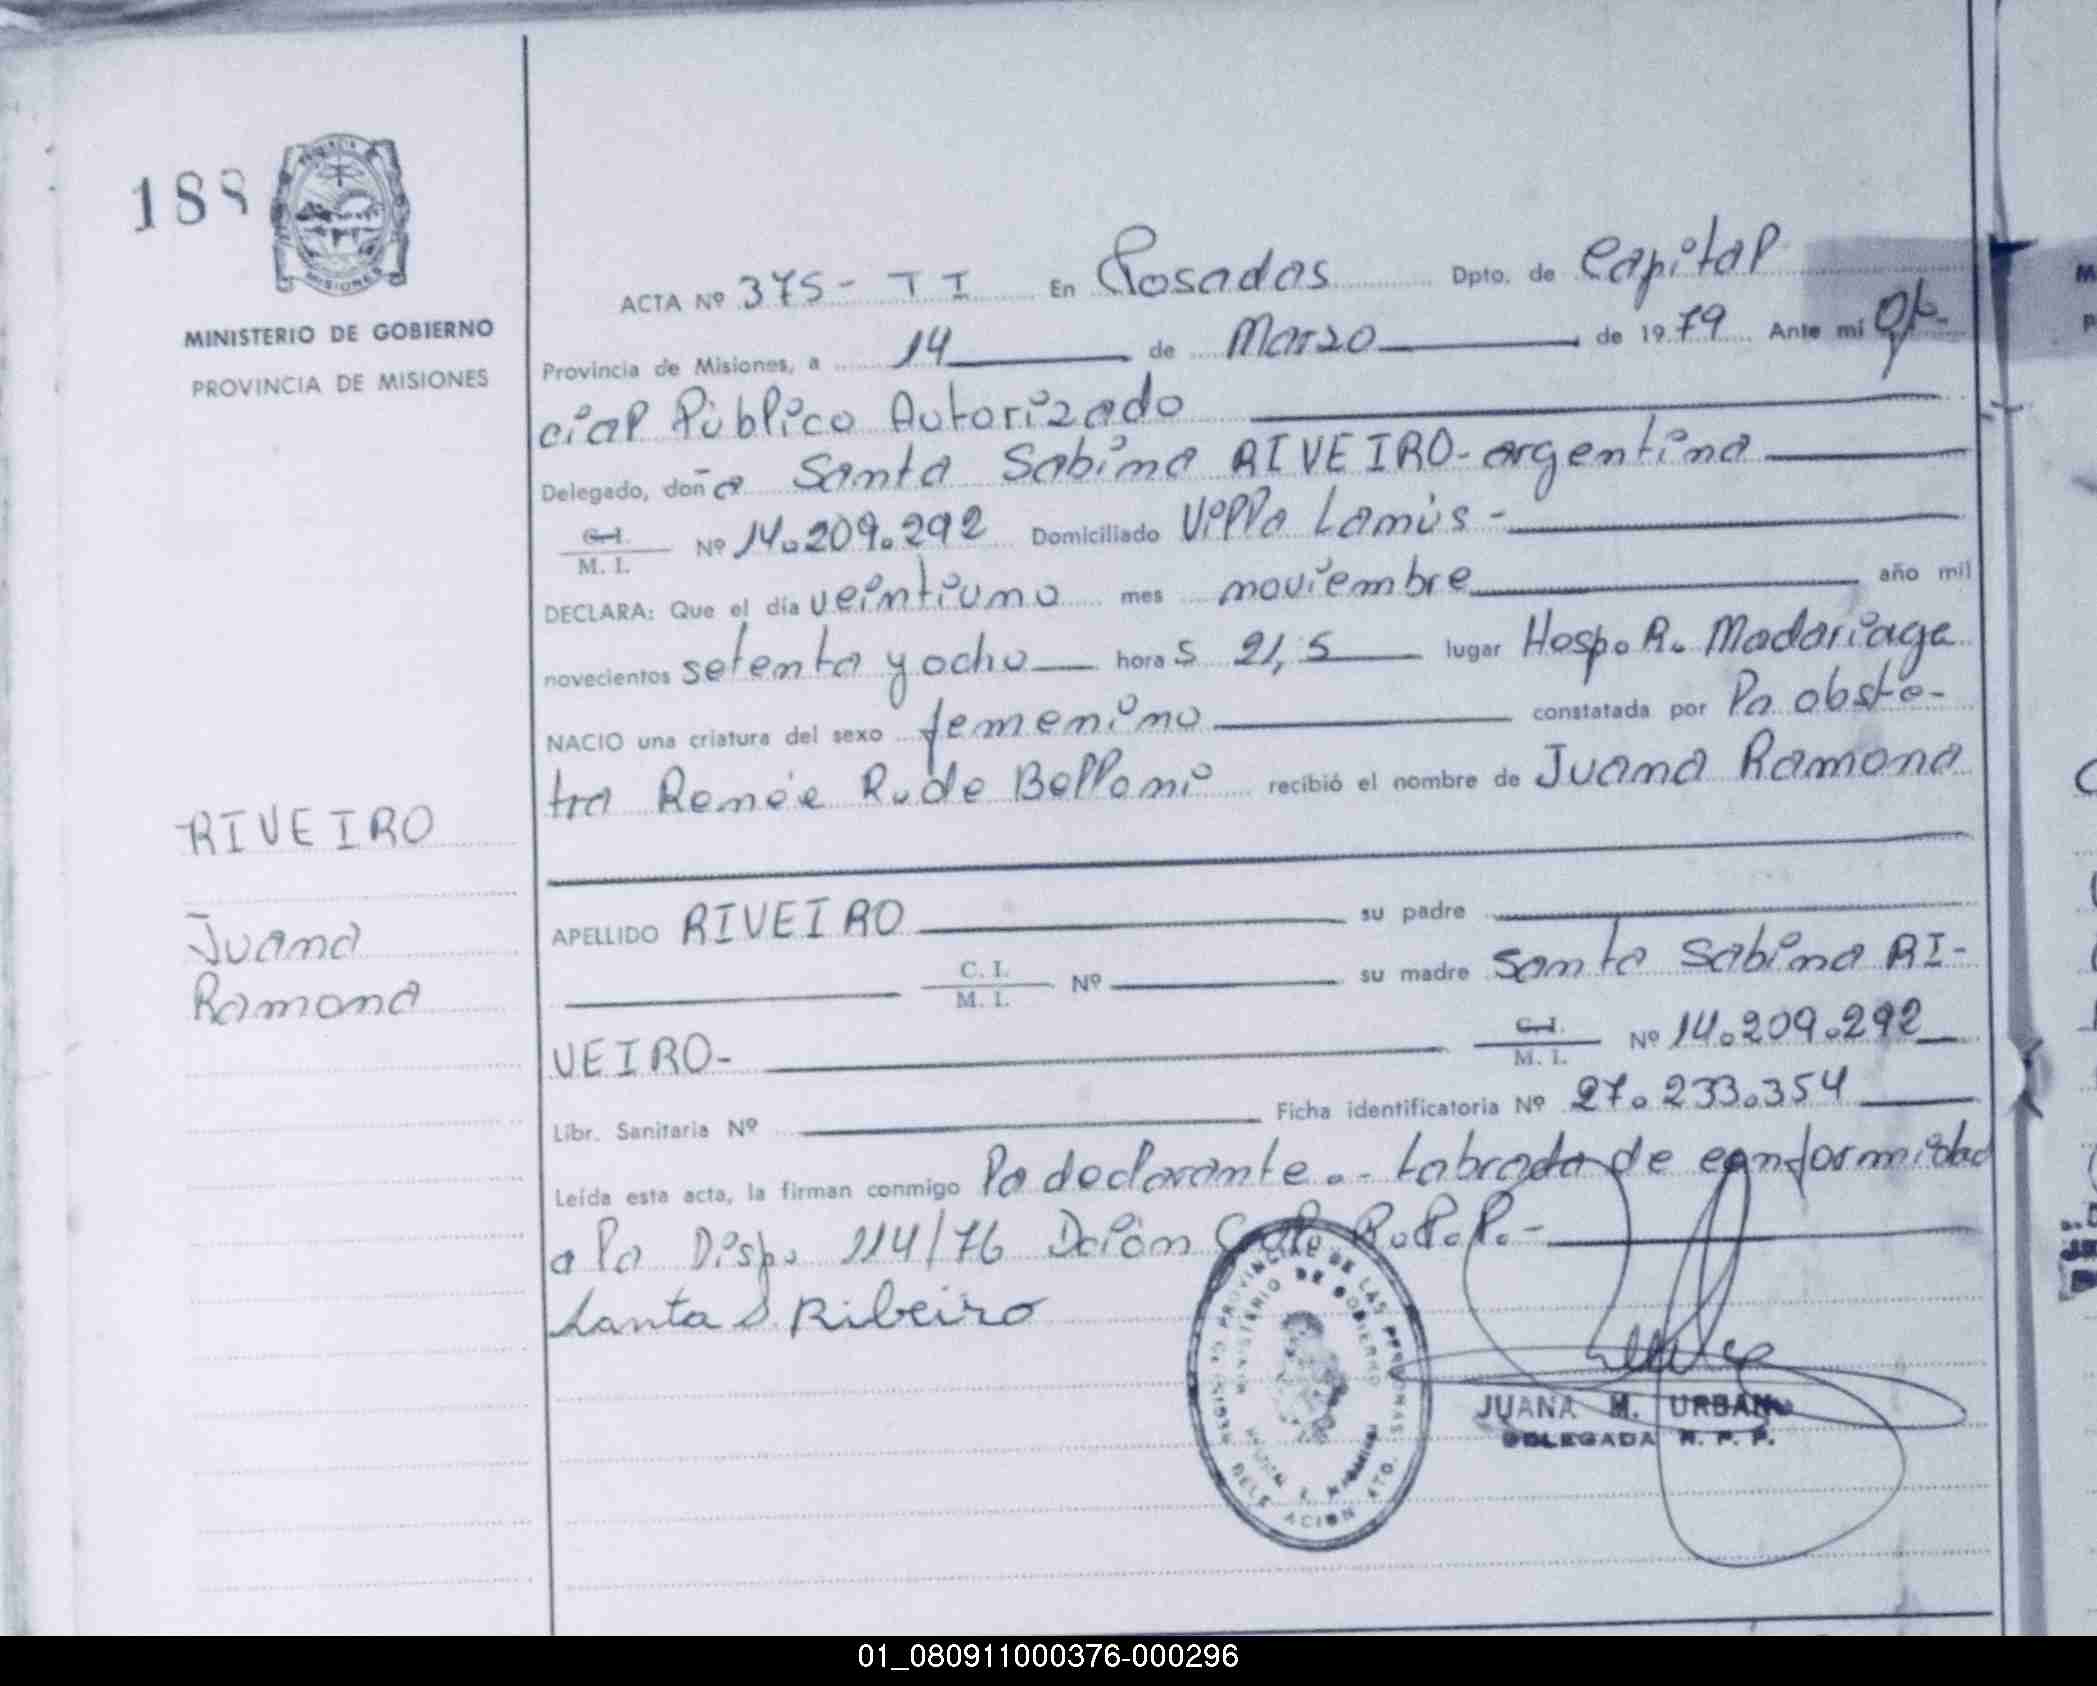 188
PROVINCIA DE
MISIONES
MINISTERIO DE GOBIERNO
PROVINCIA DE MISIONES
RIVEIRO
Juana
Ramona
ACTA Nº 375- T I En Posadas Dpto. de Capital
Provincia de Misiones, a 14 de Marzo de 1979 Ante mí Ofi-
cial Público Autorizado
Delegado, doña Santa Sabina RIVEIRO- argentina
C.I. / M. I. Nº 14.209.292 Domiciliado Villa Lanús -
DECLARA: Que el día veintiuno mes noviembre año mil
novecientos setenta y ocho hora s 21,5 lugar Hosp. R. Madariaga
NACIO una criatura del sexo femenino constatada por la obste-
tra Renée R. de Belloni recibió el nombre de Juana Ramona
APELLIDO RIVEIRO su padre
C. I. / M. I. Nº su madre Santa Sabina RI-
VEIRO- C.I. / M. I. Nº 14.209.292
Libr. Sanitaria Nº Ficha identificatoria Nº 27.233.354
Leída esta acta, la firman conmigo la declarante.- Labrada de conformidad
a la Disp. 114/76 Dción Gral. R.P.P.-
Santa S. Ribeiro
PROVINCIAL DE LAS PERSONAS
MINISTERIO DE GOBIERNO
DELEGACION
JUANA M. URBAN
DELEGADA R. P. P.
01_080911000376-000296